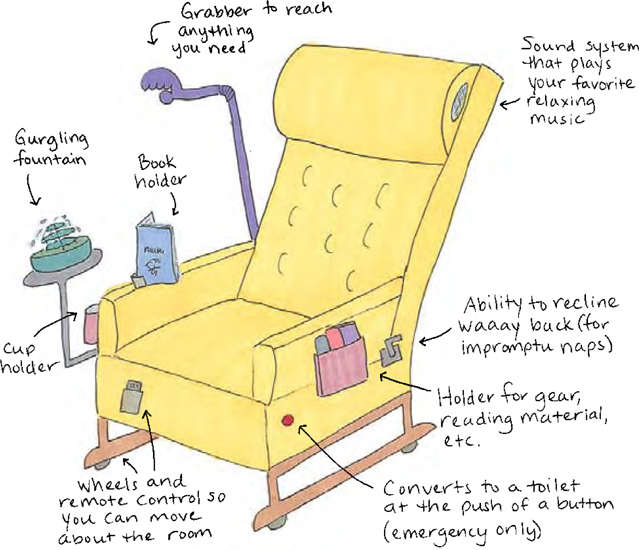 Grabber to reach
anything
you need
Sound system
that plays
your favorite
relaxing
music
Gurgling
fountain
Book
holder
cup
holder
Ability to recline
waaay back (for
impromptu naps)
Holder for gear,
reading material,
etc.
Wheels and
remote control so
you can move
about the room
Converts to a toilet
at the push of a button
(emergency only)